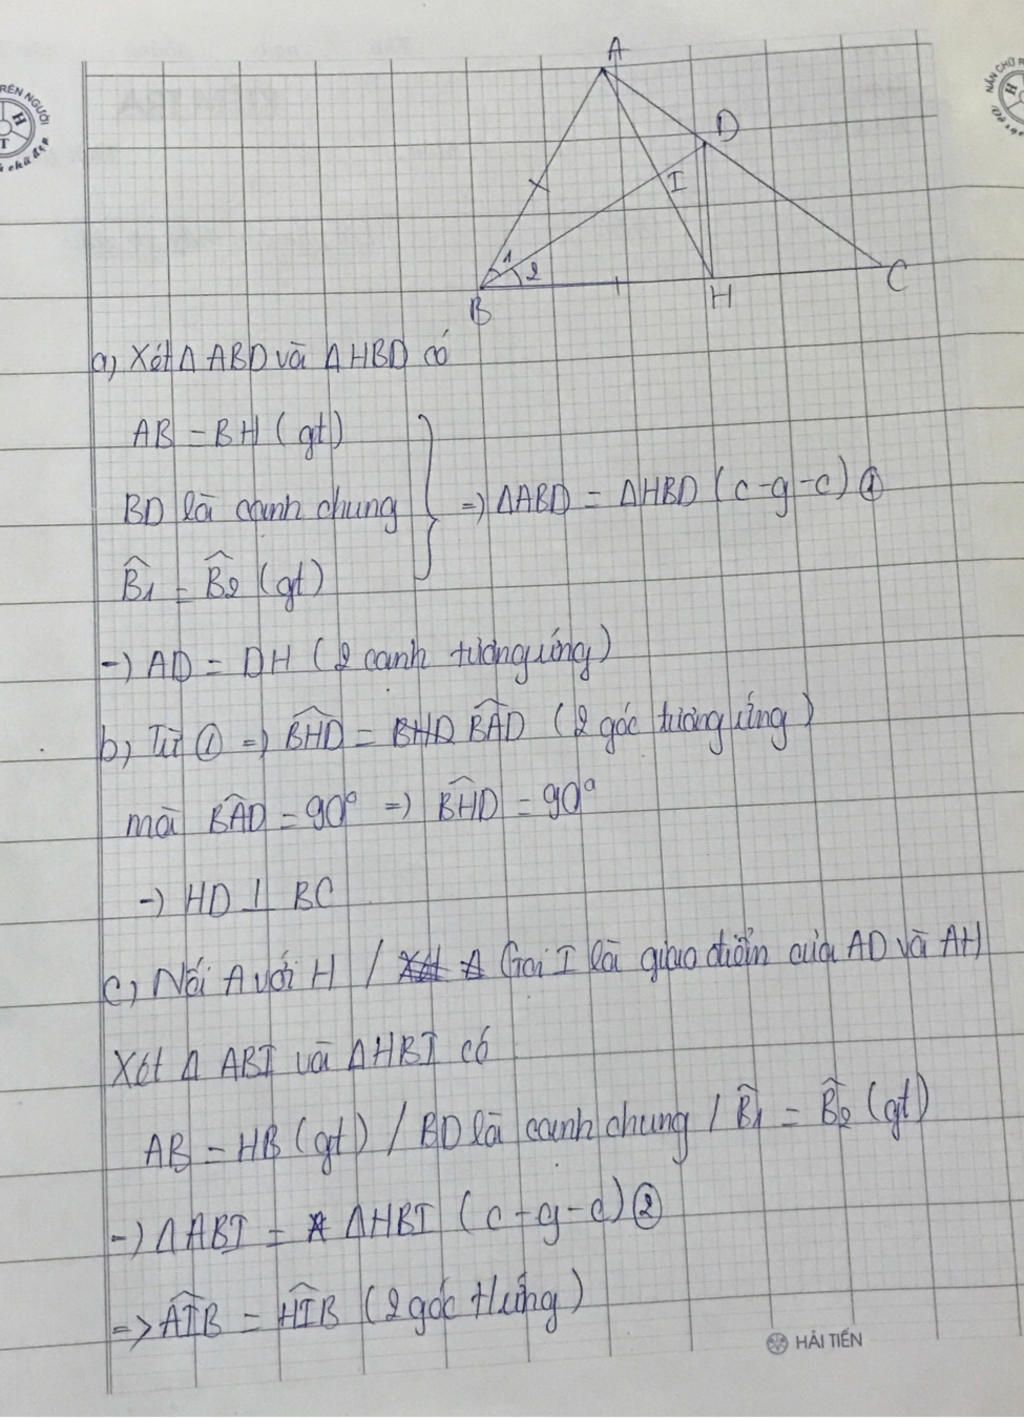 A
D
I
1
2
B
H
C
a, Xét Δ ABD và Δ HBD có
AB = BH (gt)
BD là cạnh chung
=) ΔABD = ΔHBD (c-g-c) ①
B̂1 = B̂2 (gt)
-) AD = DH (2 cạnh tương ứng)
b, Từ ① =) BĤD = BHD BÂD (2 góc tương ứng)
mà BÂD = 90° =) BĤD = 90°
-) HD ⊥ BC
c, Nối A với H / Gọi I là giao điểm của AD và AH
Xét Δ ABI và Δ HBI có
AB = HB (gt) / BD là cạnh chung / B̂1 = B̂2 (gt)
-) Δ ABI = Δ HBI (c-g-c) ②
=> AÎB = HÎB (2 góc t/ứng)
HẢI TIẾN